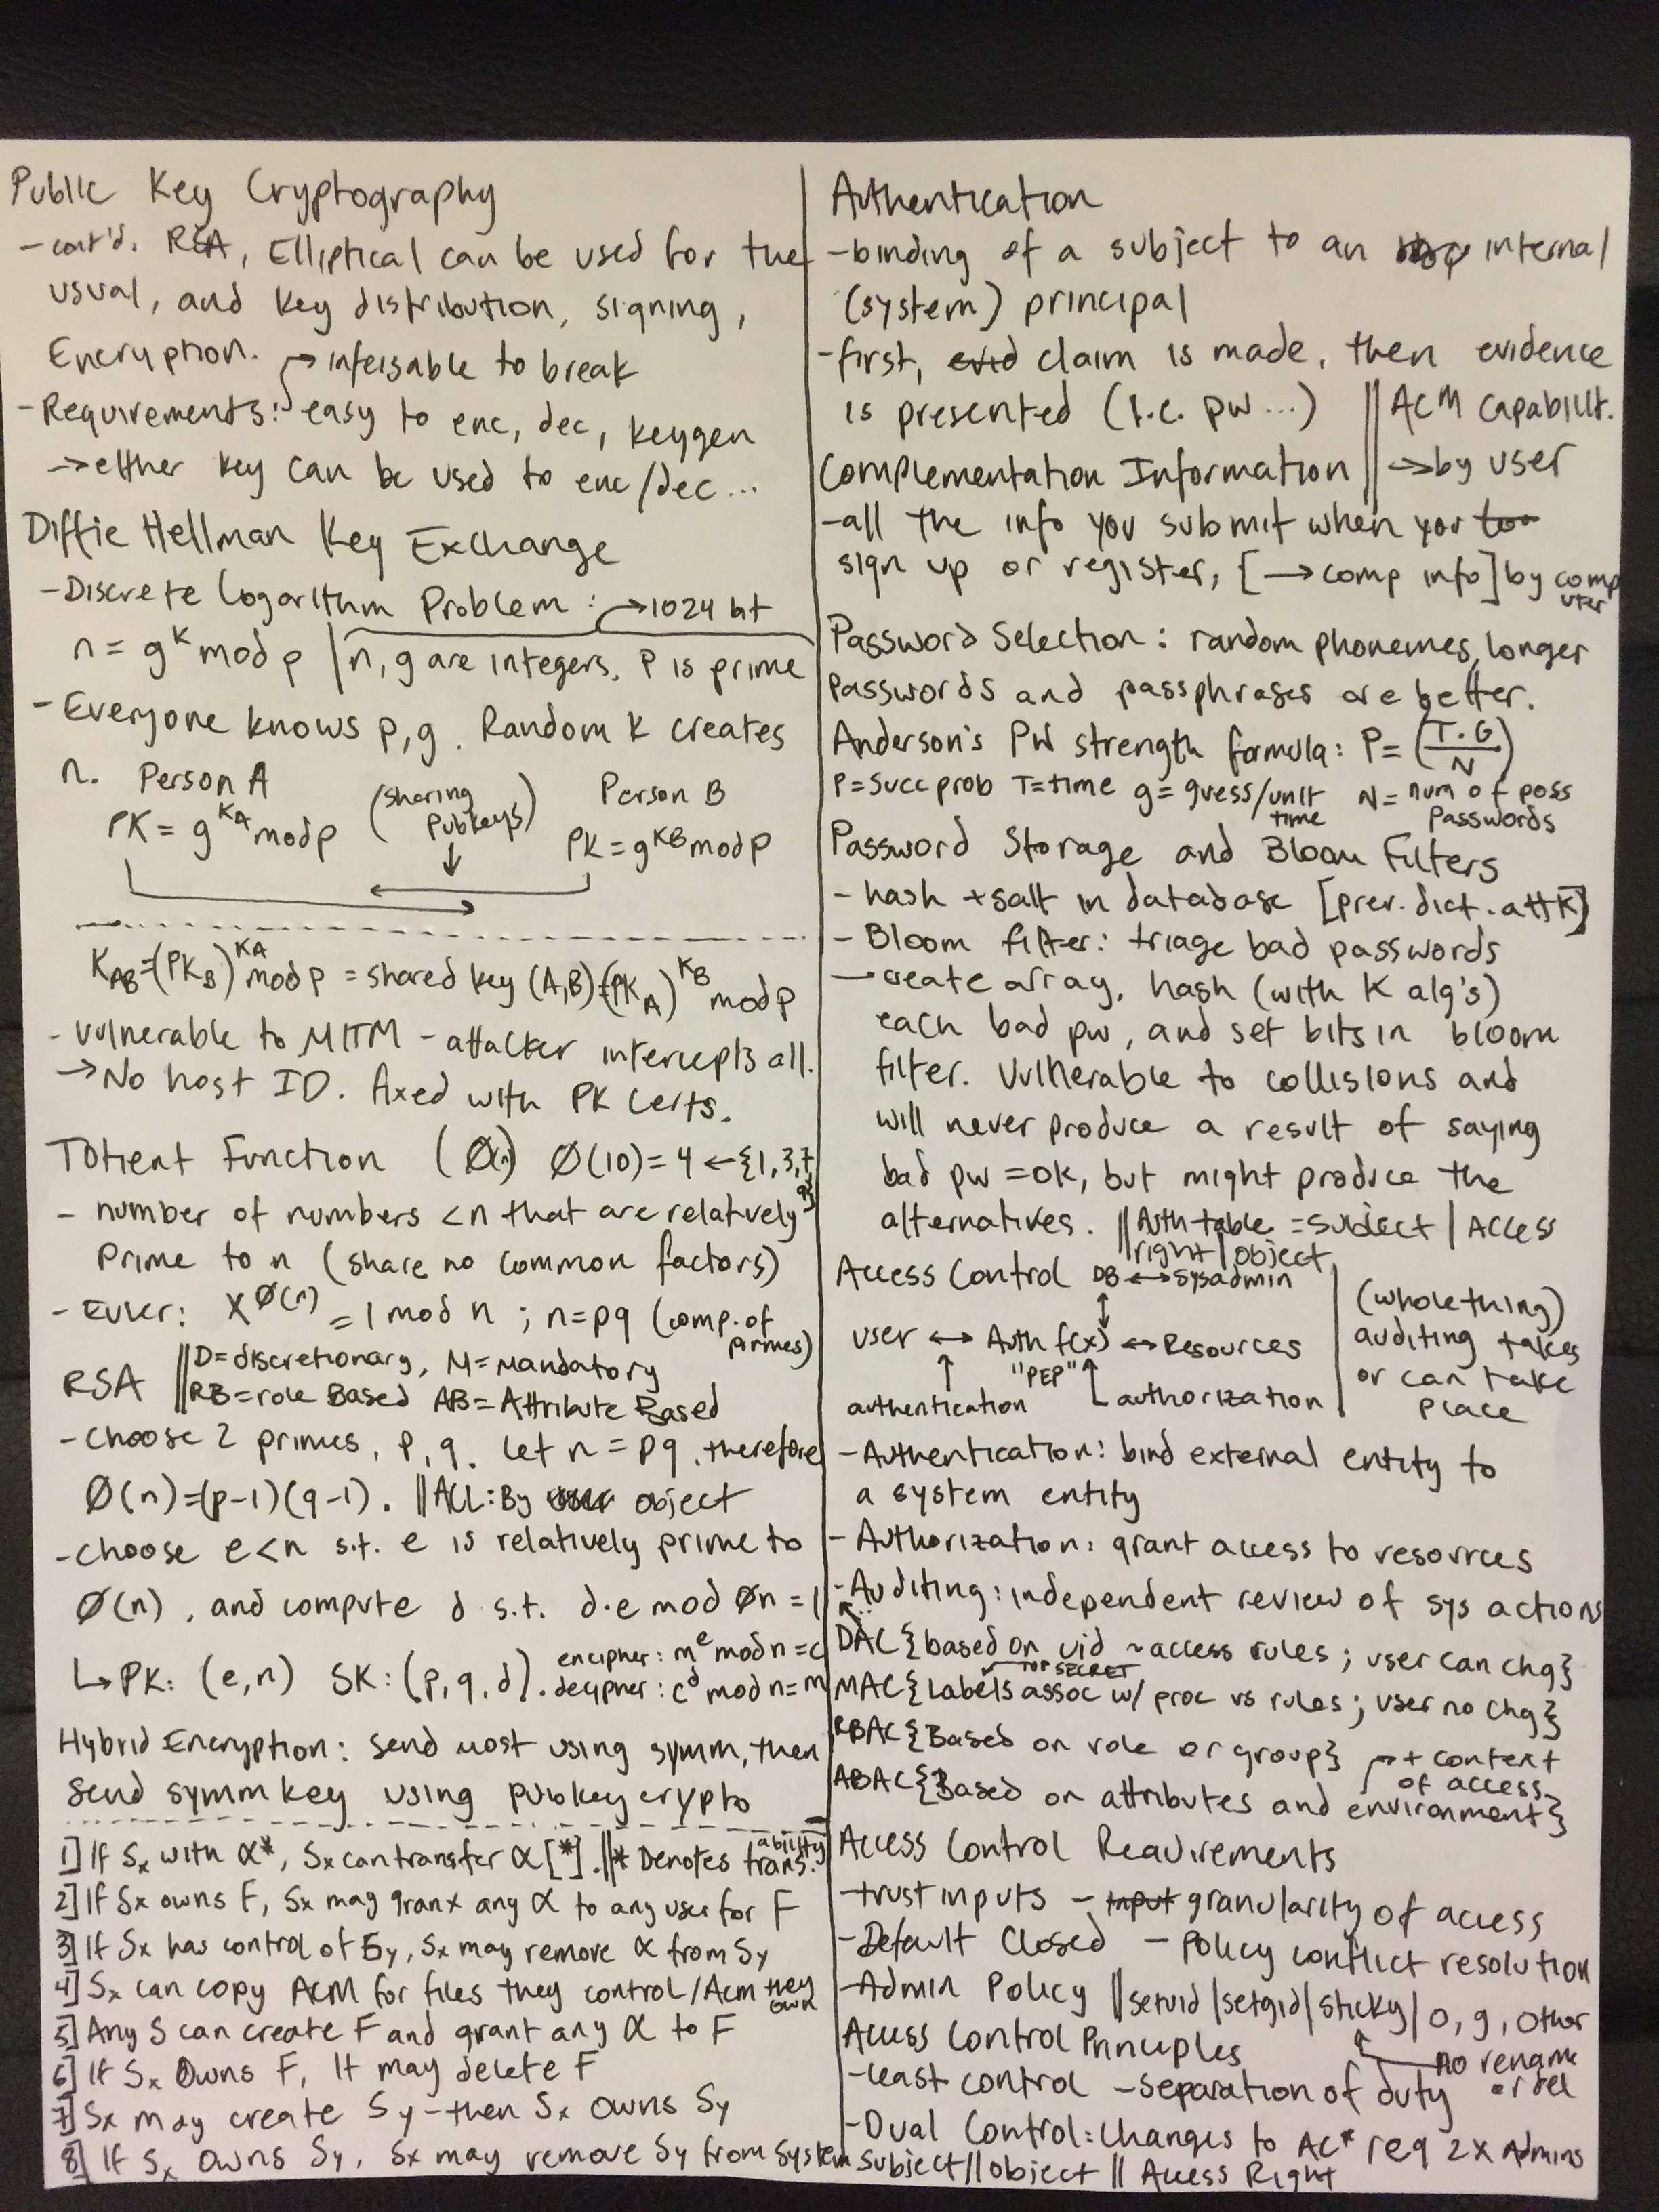 Public Key Cryptography
- cont'd. RSA, Elliptical can be used for the
usual, and key distribution, signing,
Encryption. → infeisable to break
- Requirements: easy to enc, dec, keygen
→ either key can be used to enc/dec...
Diffie Hellman Key Exchange
- Discrete Logarithm Problem: → 1024 bit
n = g^k mod p | n, g are integers. P is prime
- Everyone knows p, g. Random k creates
n. Person A (sharing pubkeys) Person B
PK = g^KA mod p ↓ PK = g^KB mod p
K_AB = (PK_B)^KA mod p = shared key (A,B) = (PK_A)^KB mod p
- Vulnerable to MITM - attacker intercepts all.
→ No host ID. fixed with PK Certs.
Totient Function (Ø(n)) Ø(10) = 4 ← {1,3,7,9}
- number of numbers < n that are relatively
prime to n (share no common factors)
- Euler: X^Ø(n) = 1 mod n ; n = pq (comp. of pirmes)
RSA || D = discretionary, M = Mandatory
|| RB = role Based AB = Attribute Based
- choose 2 primes, p, q. Let n = pq, therefore
Ø(n) = (p-1)(q-1). || ACL: By user object
- choose e < n s.t. e is relatively prime to
Ø(n), and compute d s.t. d·e mod Øn = 1
↳ PK: (e,n) SK: (p,q,d). encipher: m^e mod n = c
decipher: c^d mod n = m
Hybrid Encryption: Send most using symm, then
send symm key using pubkey crypto
1] If Sx with α*, Sx can transfer α[*]. || * Denotes trans. ability
2] If Sx owns F, Sx may grant any α to any user for F
3] If Sx has control of Sy, Sx may remove α from Sy
4] Sx can copy ACM for files they control/Acm they own
5] Any S can create F and grant any α to F
6] If Sx Owns F, It may delete F
7] Sx may create Sy - then Sx owns Sy
8] If Sx owns Sy, Sx may remove Sy from System
Authentication
- binding of a subject to an internal
(system) principal
- first, evid claim is made, then evidence
is presented (i.e. pw...) || ACM Capabilit.
Complementation Information || ↔ by user
- all the info you submit when you
sign up or register, [→ comp info] by computer
Password Selection: random phonemes, longer
passwords and passphrases are better.
Anderson's PW strength formula: P = (T·G/N)
P = Succ prob T = time g = guess/unit time N = num of poss passwords
Password Storage and Bloom Filters
- hash + salt in database [prev. dict. attk]
- Bloom filter: triage bad passwords
— create array, hash (with K alg's)
each bad pw, and set bits in bloom
filter. Vulnerable to collisions and
will never produce a result of saying
bad pw = ok, but might produce the
alternatives. || Auth table = subject | Access
|| right | object
Access Control DB ↔ sysadmin
↕
user ↔ Auth f(x) ↔ Resources
↑ "PEP" ↑
authentication authorization
(whole thing)
auditing takes
or can take
place
- Authentication: bind external entity to
a system entity
- Authorization: grant access to resources
- Auditing: independent review of sys actions
DAC {based on uid ~ access rules; user can chg}
TOP SECRET
MAC {Labels assoc w/ proc vs rules; user no chg}
RBAC {Based on role or group} → + context
of access
ABAC {Based on attributes and environment}
Access Control Requirements
- trust inputs - input granularity of access
- Default Closed - Policy conflict resolution
- Admin Policy || setuid | setgid | sticky | o, g, other
Access Control Principles no rename
- least control - separation of duty or del
- Dual Control: changes to AC* req 2x Admins
Subject || object || Access Right